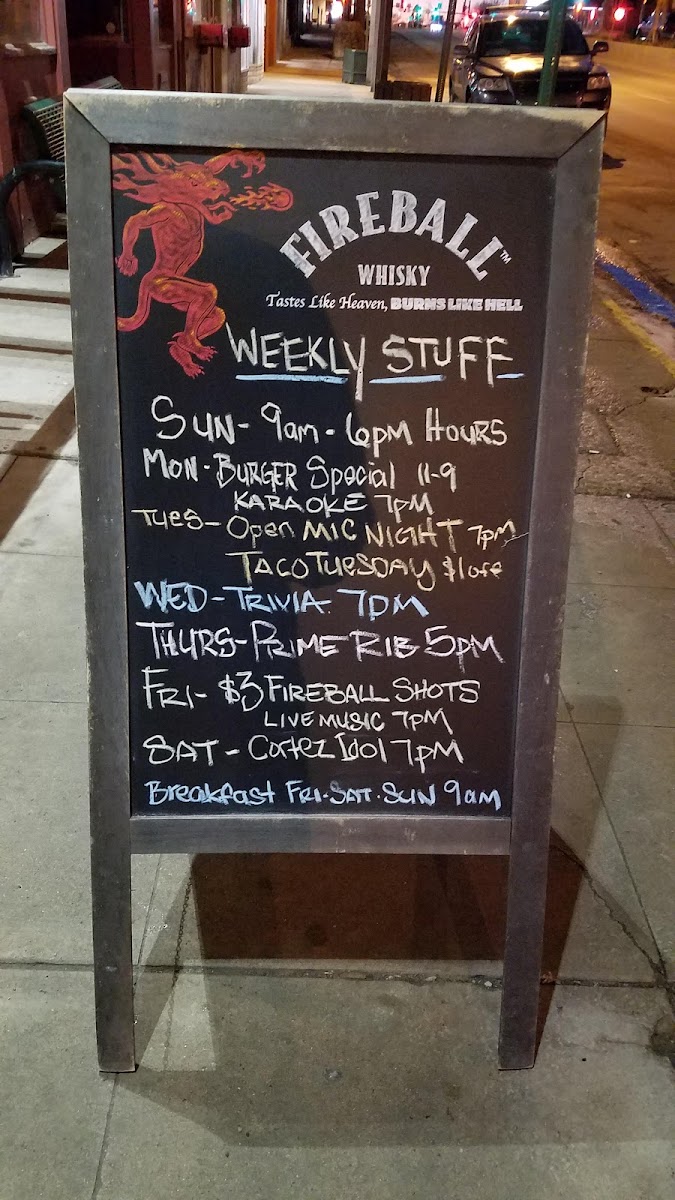 FIREBALL™
WHISKY
Tastes Like Heaven, BURNS LIKE HELL
WEEKLY STUFF
SUN - 9am - 6pm HOURS
MON - BURGER Special 11-9
KARAOKE 7PM
TUES - Open MIC NIGHT 7pm
TACO TUESDAY $1 off
WED - TRIVIA 7PM
THURS - PRIME RIB 5PM
FRI - $3 FIREBALL SHOTS
LIVE MUSIC 7PM
SAT - Cortez Idol 7PM
Breakfast FRI · SAT · SUN 9am